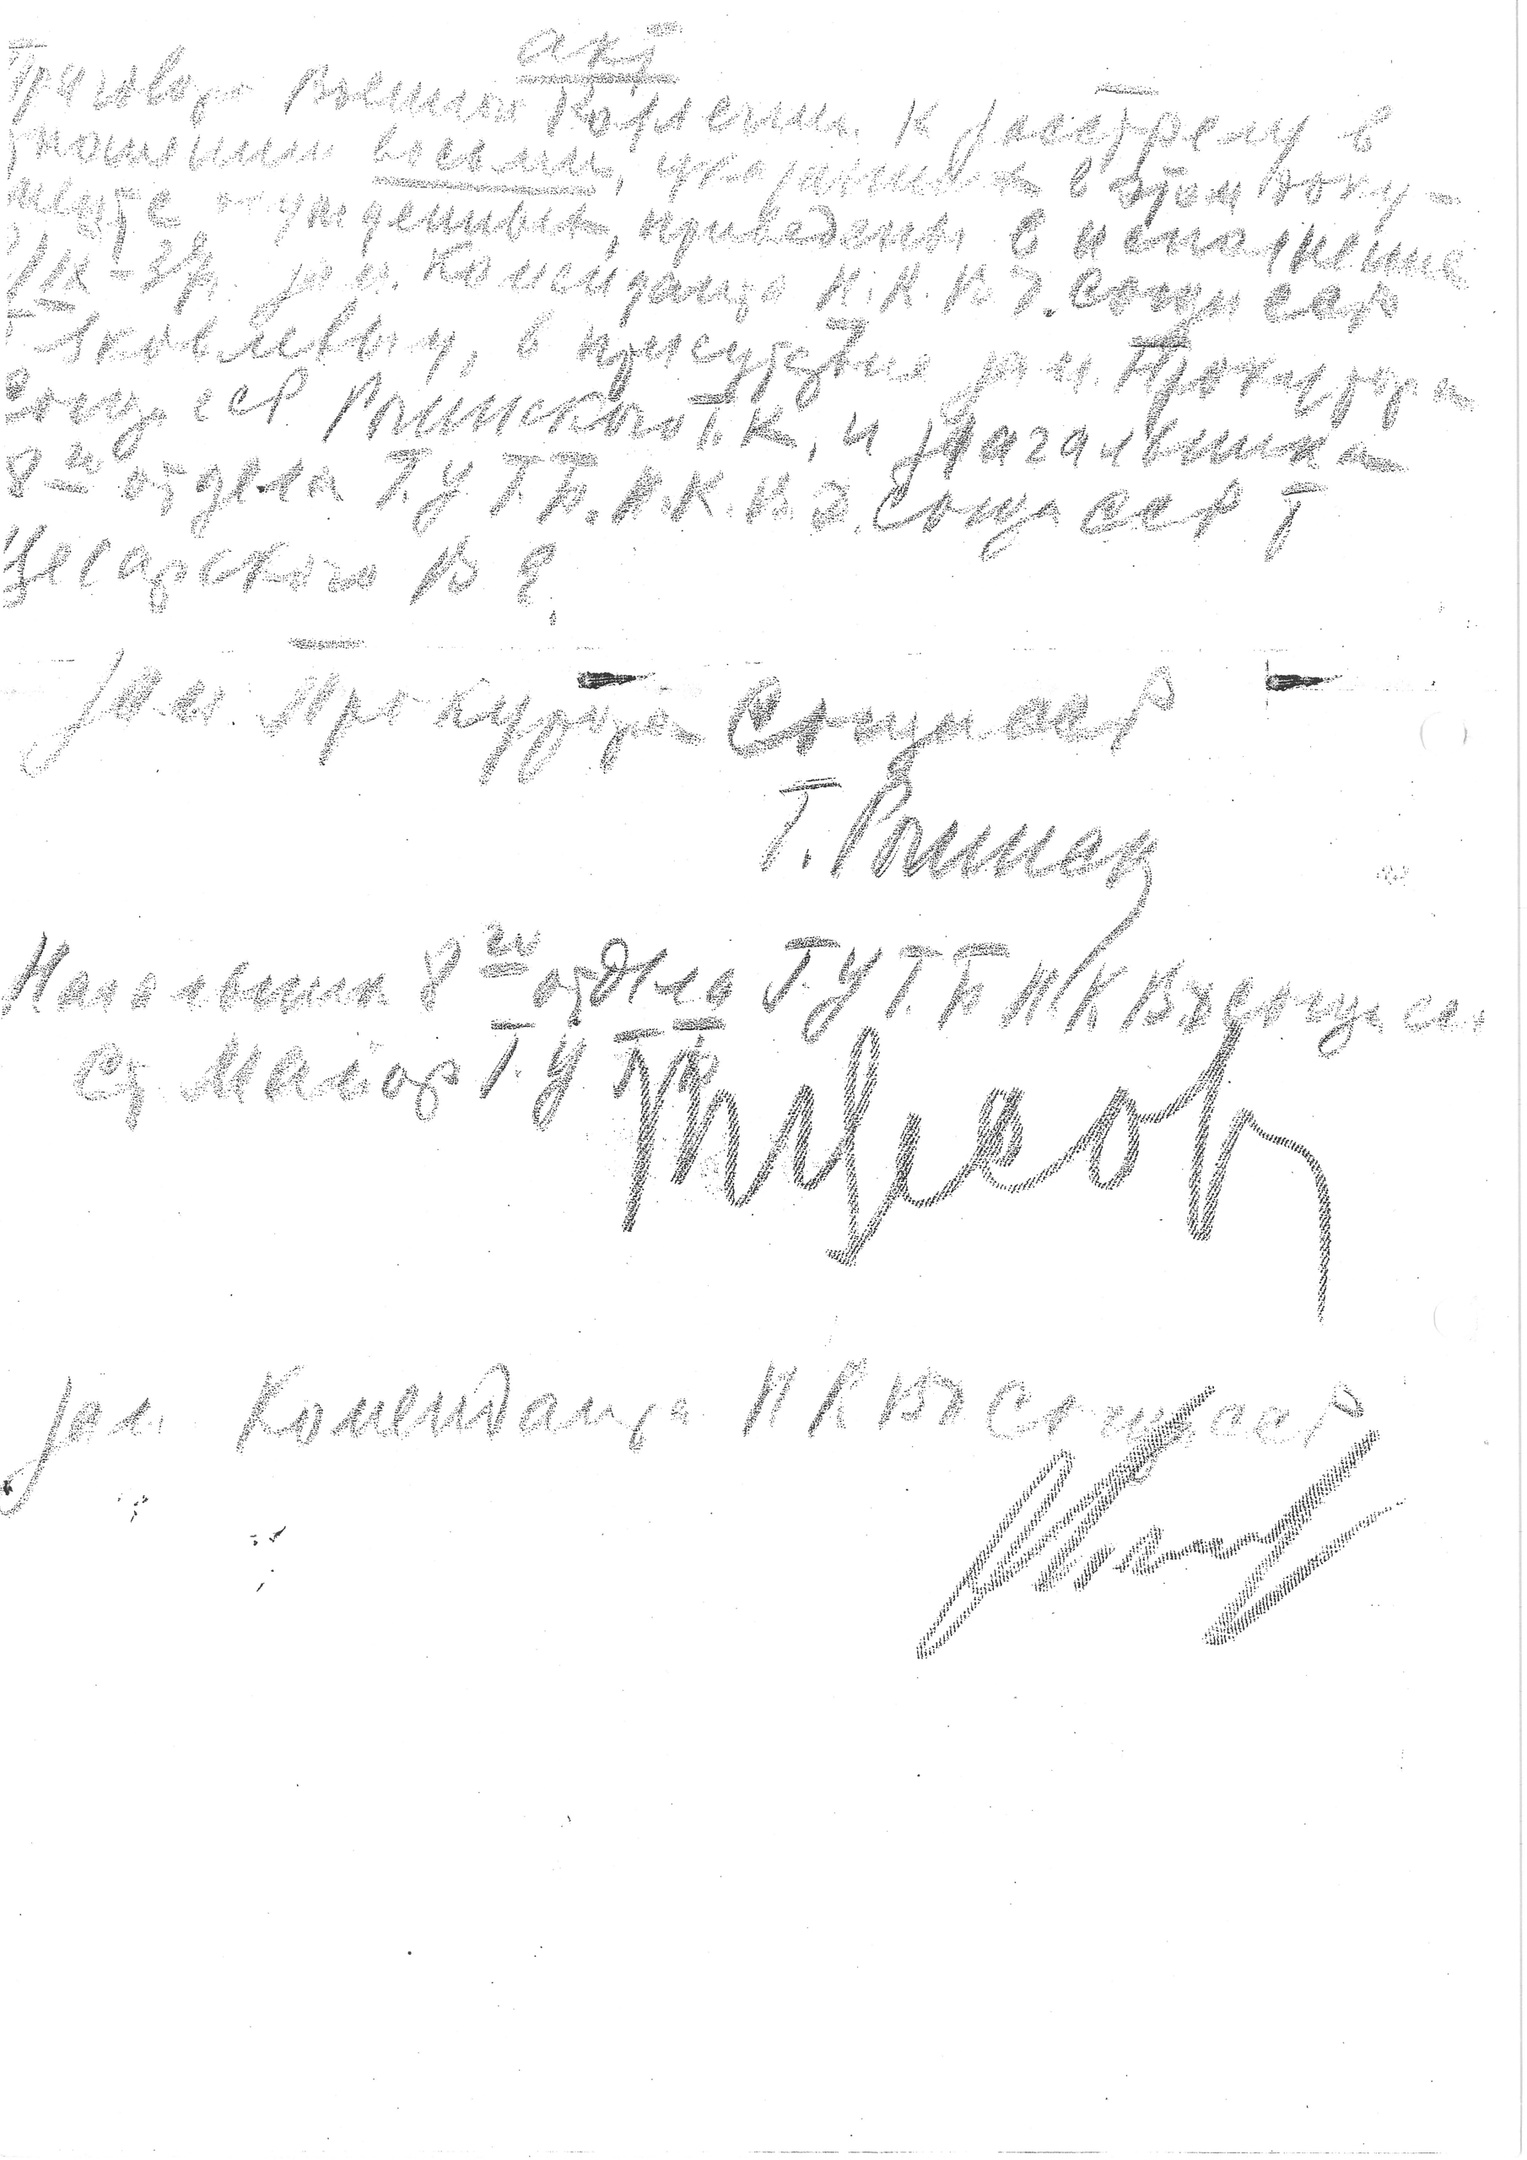 акт
Приговор Военной Коллегии к расстрелу в
отношении восьми, указанных в этом доку-
менте осужденных, приведен в исполнение
IX-37. зам. Коменданта Н.К.В.Д. Союза ССР
Яковлевым, в присутствие зам. Прокурора
Союза ССР Рогинского Г.К, и Начальника
8го отдела Г.У.Г.Б. Н.К.В.Д. Союза ССР т
Цесарского В Е.
Зам. Прокурора Союза ССР
Г. Рогинск
Начальник 8го отдела Г.У Г.Б Н.К В.Д Союза сср
Ст. Майор Г.У Г.Б
Зам. Коменданта Н К В Д Союза ССР